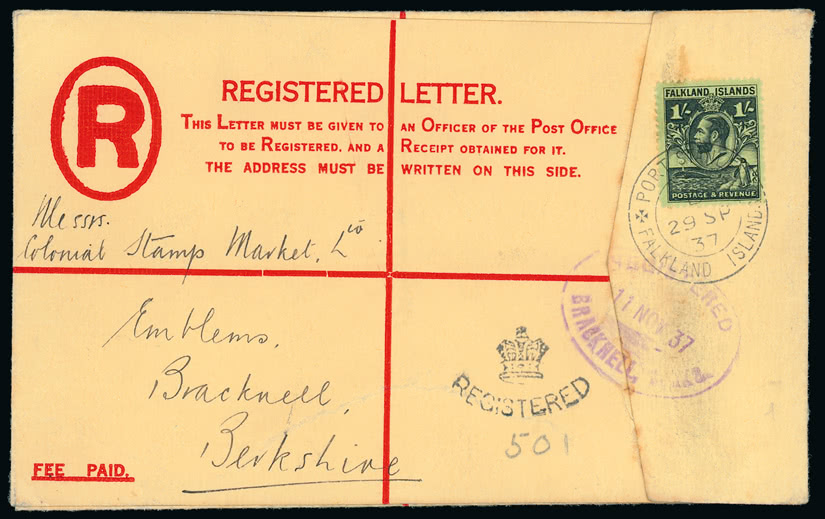 R
REGISTERED LETTER.
THIS LETTER MUST BE GIVEN TO AN OFFICER OF THE POST OFFICE
TO BE REGISTERED, AND A RECEIPT OBTAINED FOR IT.
THE ADDRESS MUST BE WRITTEN ON THIS SIDE.
FALKLAND ISLANDS
1/- 1/-
POSTAGE & REVENUE
PORT
29 SP
37
FALKLAND ISLAND
Messrs.
Colonial Stamp Market, Lᵗᵈ
Emblems,
Bracknell,
Berkshire
REGISTERED
11 NOV 37
BRACKNELL,
REGISTERED
501
FEE PAID.